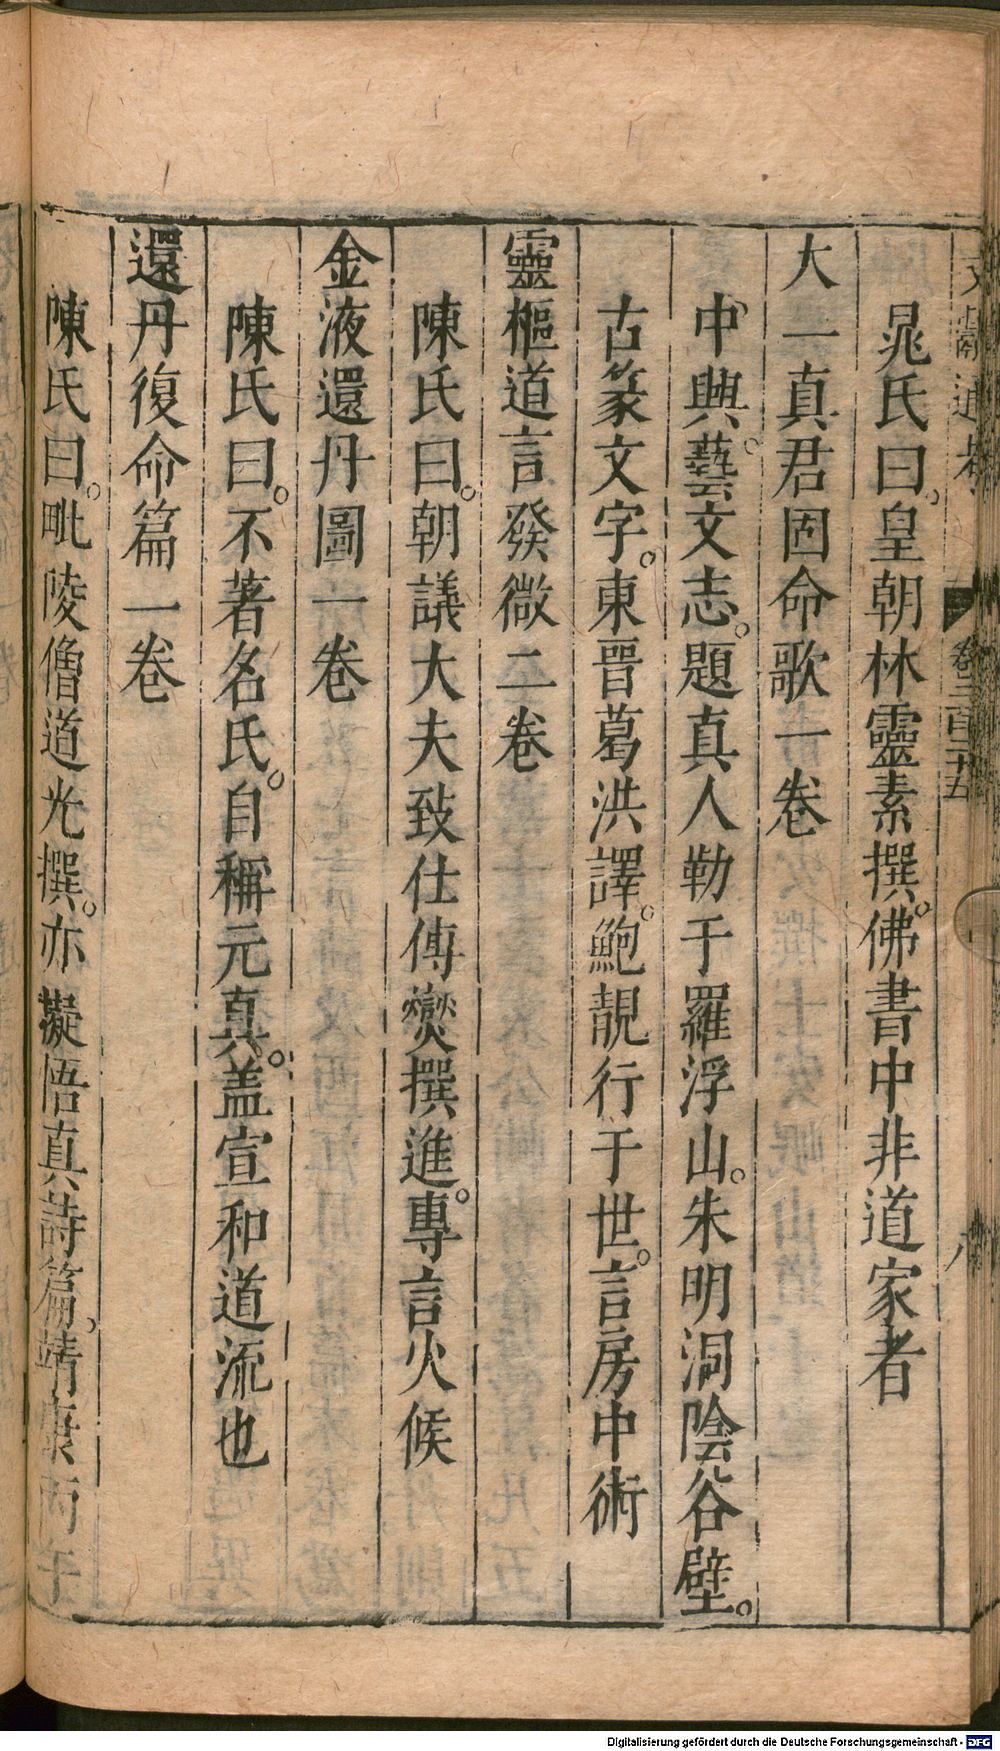 文獻通考 卷二百二十五 八
晁氏曰。皇朝林靈素撰。佛書中非道家者
大一真君固命歌一卷
中興藝文志。題真人勒于羅浮山。朱明洞陰谷壁。
古篆文字。東晉葛洪譯。鮑靚行于世。言房中術
靈樞道言發微二卷
陳氏曰。朝議大夫致仕傅爕撰進。專言火候
金液還丹圖一卷
陳氏曰。不著名氏。自稱元真。盖宣和道流也
還丹復命篇一卷
陳氏曰。毗陵僧道光撰。亦擬悟真詩篇。靖康丙午
Digitalisierung gefördert durch die Deutsche Forschungsgemeinschaft - DFG